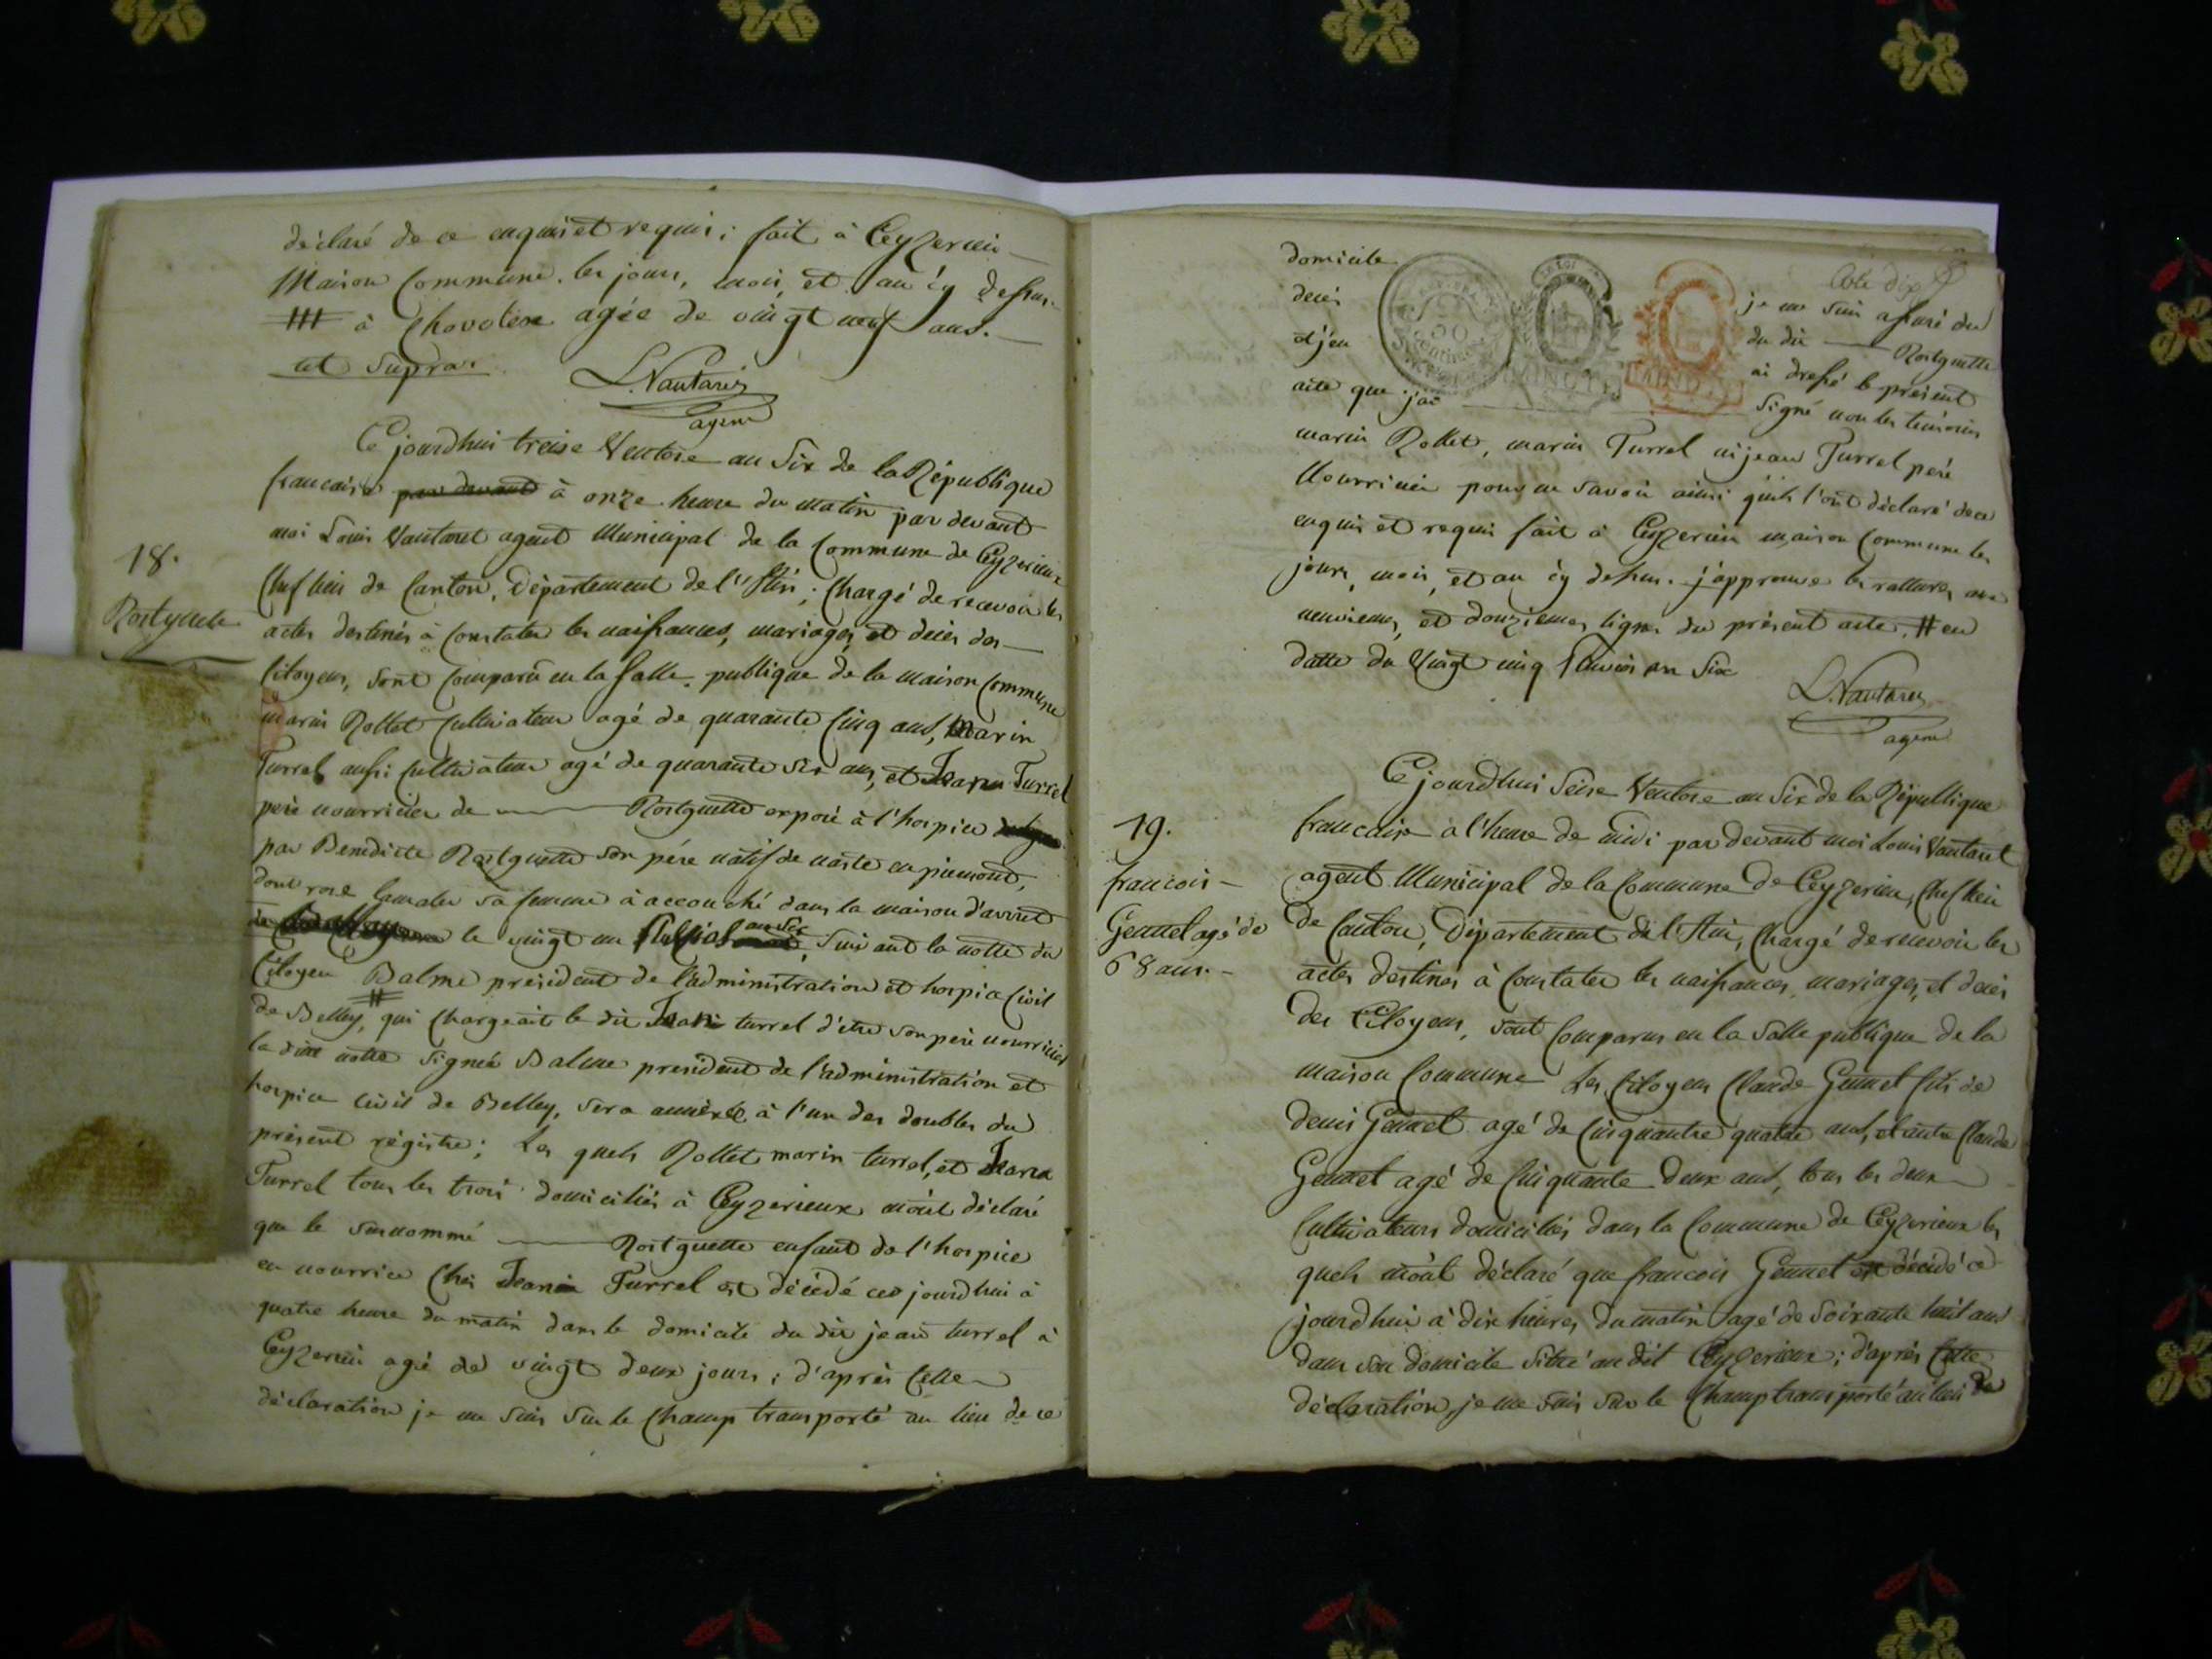 déclaré de ce enquis et requis ; fait à Ceyzerieu
Maison Commune les jours, mois et an cy dessus.
à Chavolère agée de vingt neuf ans.
ut supra.
L. Vautaret
agent
Ce jourdhui treise Ventose an Six de la République
francaise par devant à onze heure du matin par devant
moi Louis Vautaret agent Municipal de la Commune de Ceyzerieux
18.
Chef lieu de Canton, Département de l'Ain, Chargé de recevoir les
Rostquette
actes destinés à Constater les naissances, mariages et décès des
Citoyens, sont Comparu en la salle publique de la maison Commune
marin Rollet Cultivateur agé de quarante Cinq ans, Marin
Turrel aussi Cultivateur agé de quarante six ans, et Jean Turrel
père nourricier de Rostquette exposé à l'hospice
par Benedicte Rostquette son père natif de naste en piemont,
dont rose sa femme à accouché dans la maison d'arrest
de le vingt un an six, suivant la notte du
Citoyen Balme président de l'administration et hospice Civil
de Belley, # qui Chargeait le dit Jean turrel d'être son père nourricier
la dite notte signée Balme president de l'administration et
hospice Civil de Belley, sera annexée à l'un des doubles du
présent régistre ; Les quels Rollet marin turrel, et Jean
Turrel tous les trois domiciliés à Ceyzerieux m'ont déclaré
que le surnommé Rostquette enfant de l'hospice
en nourrice Chés Jean Turrel est décédé ce jourdhui à
quatre heure du matin dans le domicile du dit jean turrel à
Ceyzerieu agé de vingt deux jours ; d'après Cette
déclaration je me suis sur le Champ transporté au lieu de ce
domicile je me suis assuré du
décès du dit Rostquette
et j'en ai dressé le présent
acte que j'ai signé non les témoins
marin Rollet, marin Turrel ni jean Turrel père
Nourricier pour ne savoir ainsi qu'ils l'ont déclaré de ce
enquis et requis fait à Ceyzerieu maison Commune les
jours, mois, et an cy dessus. j'approuve les rattures aux
neuviemes, et douziemes lignes du présent acte, # en
datte du Vingt cinq Pluvios an Six
L. Vautaret
agent
Ce jourdhui Seise Ventose an Six de la République
19.
francaise a l'heure de midi par devant moi Louis Vautaret
francois
agent Municipal de la Commune de Ceyzerieu, Chef lieu
Gennet agé de
de Canton, Département de l'Ain, Chargé de recevoir les
68 ans.
actes destinés à Constater les naissances, mariages, et decès
des Citoyens, sont Comparus en la Salle publique de la
maison Commune Les Citoyens Claude Gennet fils de
denis Gennet agé de Cinquante quatre ans, et autre Claude
Gennet agé de Cinquante Deux ans, tous les deux
Cultivateurs domiciliés dans la Commune de Ceyzerieux les
quels m'ont déclaré que francois Gennet est décédé ce
jourdhui à dix heures du matin agé de soixante huit ans
dans son domicile situé au dit Ceyzerieux ; d'après Cette
déclaration, je me suis sur le Champ transporté au lieu de